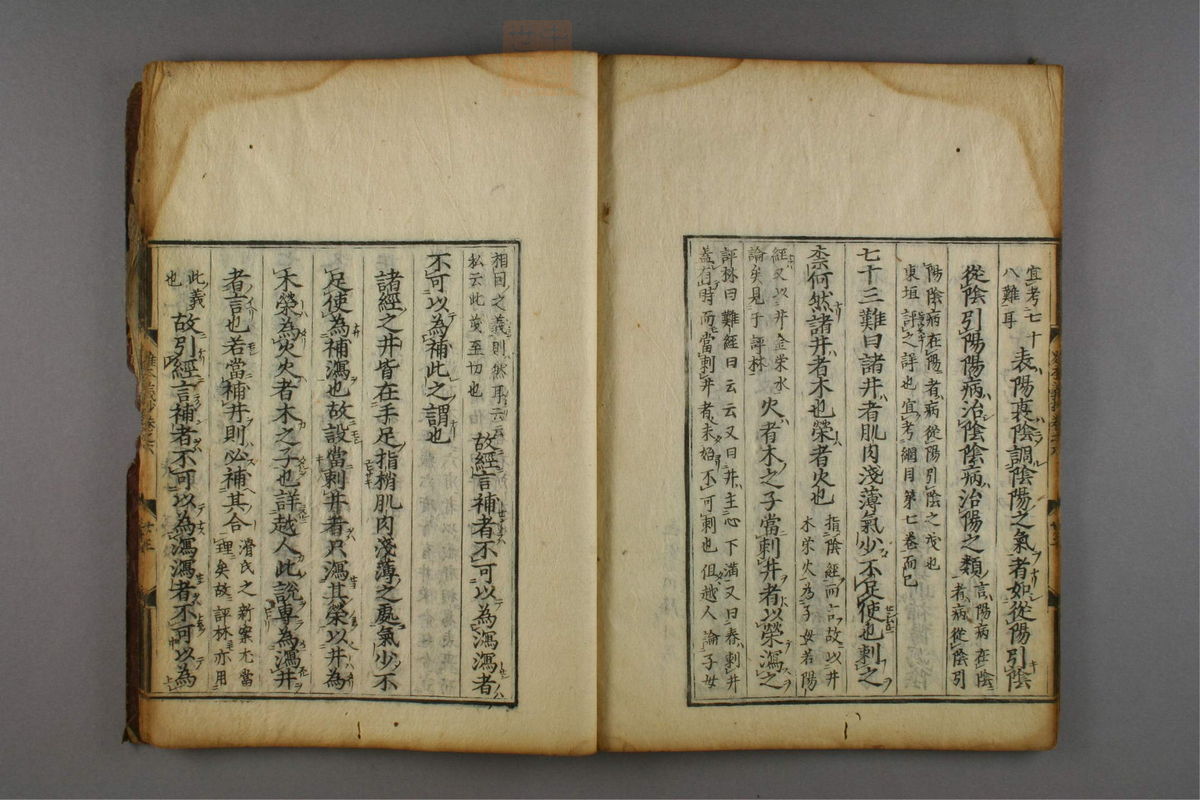 宜考七十
八難耳
表陽裏陰調陰陽之氣者如從陽引陰
從陰引陽陽病治陰陰病治陽之類
言陽病在陰
者病從陰引
陽陰病在陽者病從陽引陰之戌也
東垣評之詳也宜考綱目第七卷而已
七十三難曰諸井者肌肉淺薄氣少不足使也刺之
柰何然諸井者木也滎者火也
指陰經而言故以井
木滎火為子母若陽
經又以井金滎水
論矣見于評林
火者木之子當刺井者以滎瀉之
評林曰難經曰云云又曰井主心下滿又曰春刺井
蓋有時而當刺井者未始不可刺也但越人論子母
相因之義則然耳云云
私云此義至切也
故經言補者不可以為瀉瀉者
不可以為補此之謂也
諸經之井皆在手足指梢肌肉淺薄之處氣少不
足使為補瀉也故設當刺井者只瀉其滎以井為
木滎為火火者木之子也詳越人此說專為瀉井
者言也若當補井則必補其合
滑氏之新案尤當
理矣故評林亦用
此義
也
故引經言補者不可以為瀉瀉者不可以為